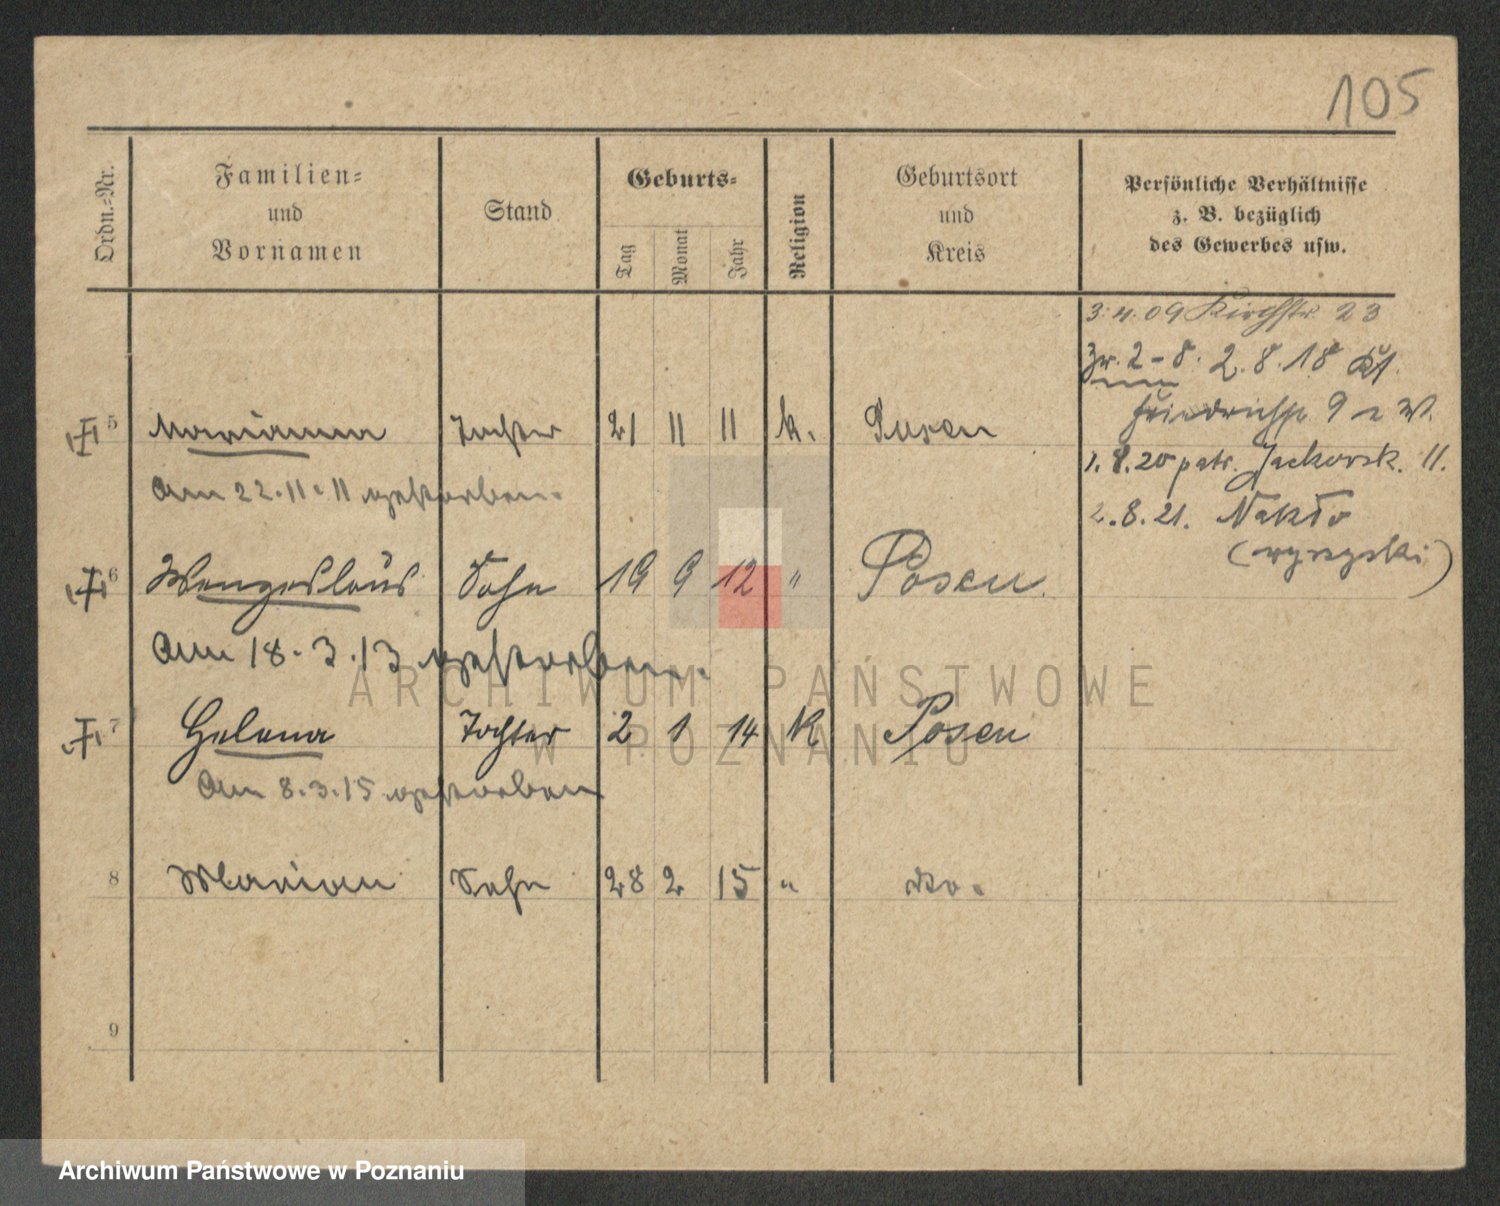 105
Ordn.=Nr.
Familien=
und
Vornamen
Stand
Geburts=
Tag
Monat
Jahr
Religion
Geburtsort
und
Kreis
Persönliche Verhältnisse
z. B. bezüglich
des Gewerbes usw.
3.4.09 Kirchstr. 23
Zw. 2-8. 2.8.18
Friedrichstr. 9 W.
1.8.20 patr. Jackowsk. 11.
2.8.21. Nakło
(wyrzyski)
5 Marianna Tochter 21 11 11 k. Posen
Am 22.11.11 gestorben.
6 Wenzeslaus Sohn 19 9 12 " Posen
Am 18.3.13 gestorben.
7 Helena Tochter 2 1 14 K Posen
Am 8.3.15 gestorben
8 Marian Sohn 28 2 15 " do.
9
ARCHIWUM PAŃSTWOWE
W POZNANIU
Archiwum Państwowe w Poznaniu